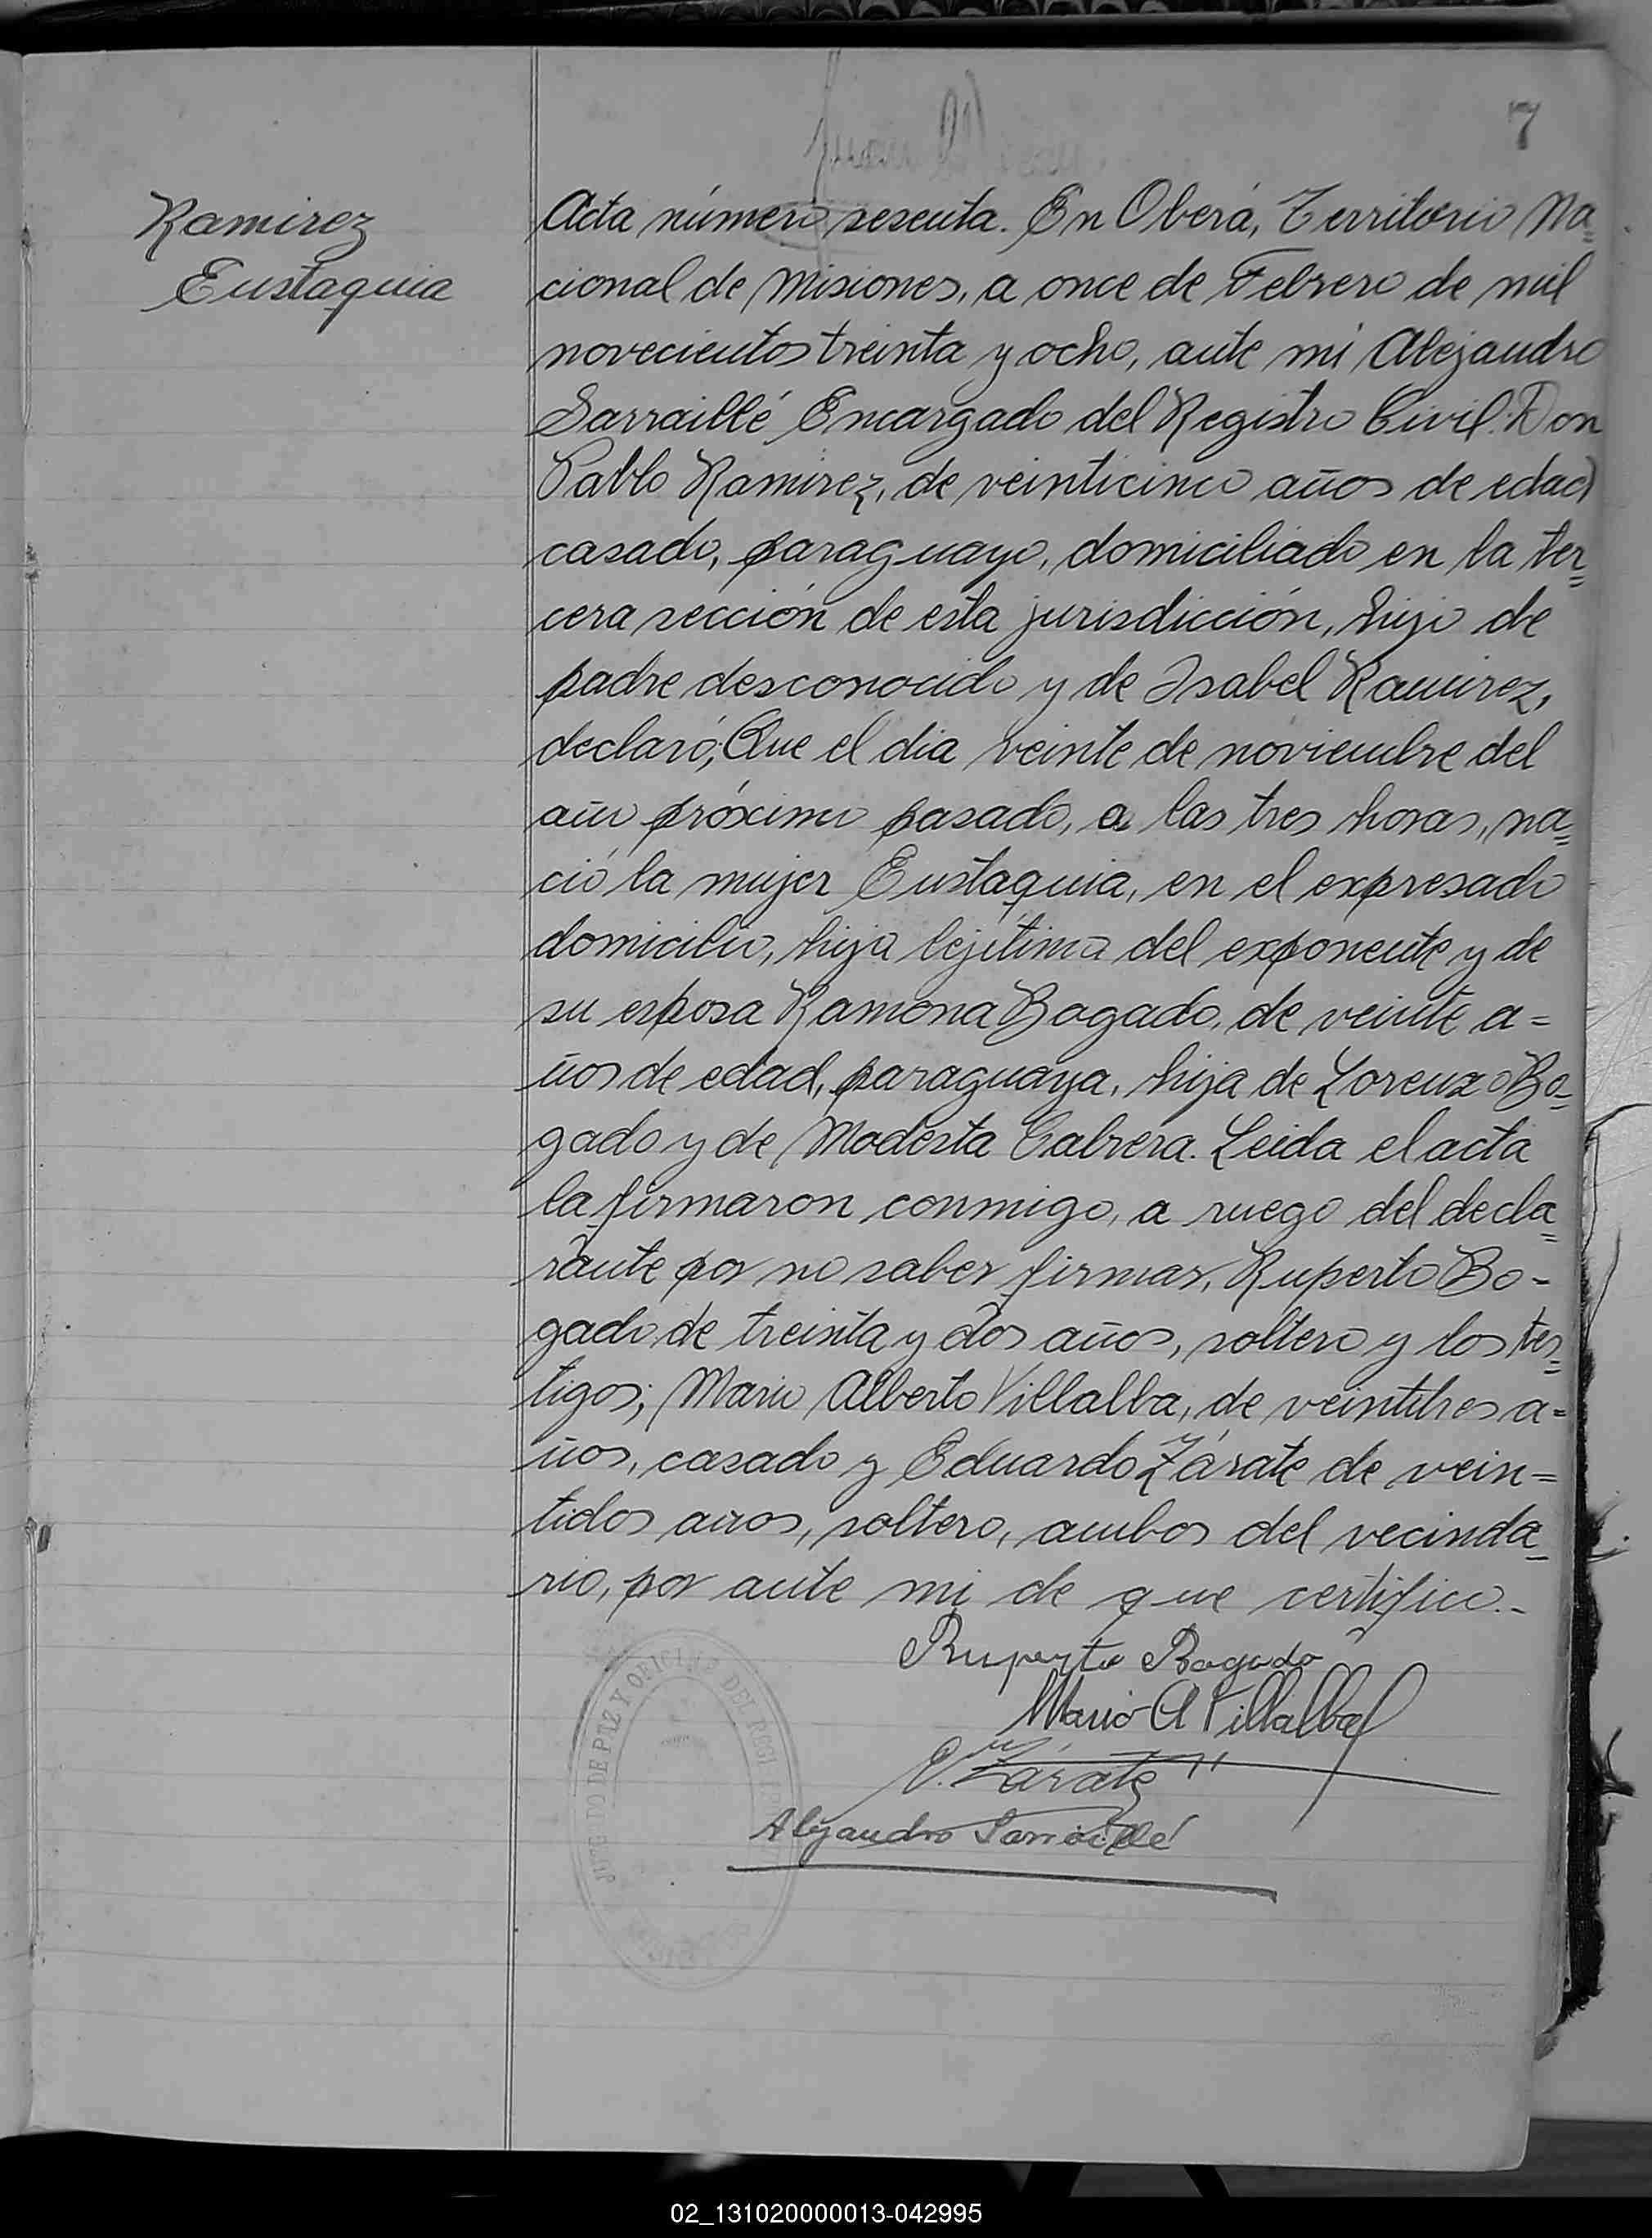 7
Ramirez
Eustaquia
Acta número sesenta. En Oberá, Territorio Na=
cional de Misiones, a once de Febrero de mil
novecientos treinta y ocho, ante mi Alejandro
Sarraillé Encargado del Registro Civil. Don
Pablo Ramirez, de veinticinco años de edad
casado, paraguayo, domiciliado en la ter=
cera sección de esta jurisdicción, hijo de
padre desconocido y de Isabel Ramirez,
declaró; Que el dia veinte de noviembre del
año próximo pasado, a las tres horas, na=
ció la mujer Eustaquia, en el expresado
domicilio, hija lejítima del exponente y de
su esposa Ramona Bogado, de veinte a=
ños de edad, paraguaya, hija de Lorenzo Bo=
gado y de Modesta Cabrera. Leida el acta
la firmaron conmigo, a ruego del decla=
rante por no saber firmar, Ruperto Bo-
gado de treinta y dos años, soltero y los tes=
tigos; Mario Alberto Villalba, de veintitres a=
ños, casado y Eduardo Zárate de vein=
tidos años, soltero, ambos del vecinda=
rio, por ante mi de que certifico.-
Ruperto Bogado
Mario A Villalba
E. Zárate
Alejandro Sarraillé
JUZGADO DE PAZ Y OFICINA DEL REGI
02_131020000013-042995